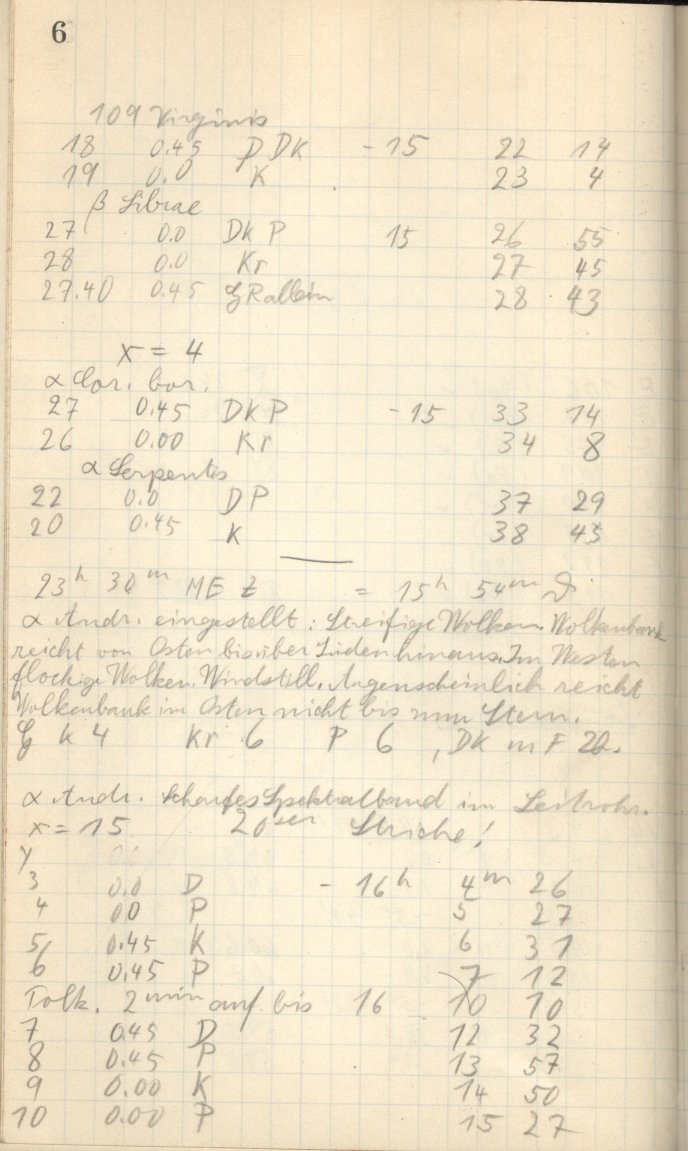 6
109 Virginis
18 0.45 D DK - 15 22 14
19 0.0 K 23 4
β Librae
27 0.0 DK P 15 26 55
28 0.0 Kr 27 45
27.40 0.45 28 43
x = 4
α Cor. bor.
27 0.45 DK P - 15 33 14
26 0.00 Kr 34 8
α Serpentis
22 0.0 D P 37 29
20 0.45 K 38 45
23h 30m ME Z = 15h 54m
α Andr. eingestellt: Streifige Wolken. Wolkenbank
reicht von Osten bis über Süden hinaus. Im Westen
flockige Wolken. Windstill. Augenscheinlich reicht
Wolkenbank im Osten nicht bis zum Stern.
K 4 Kr 6 P 6 , DK m F
α Andr. Scharfes Spektralband im Leitrohr.
x = 15 20ser Striche!
y
3 0.0 D - 16h 4m 26
4 00 P 5 27
5 0.45 K 6 31
6 0.45 P 7 12
2 min auf bis 16 10 10
7 0.45 D 12 32
8 0.45 P 13 57
9 0.00 K 14 50
10 0.00 P 15 27